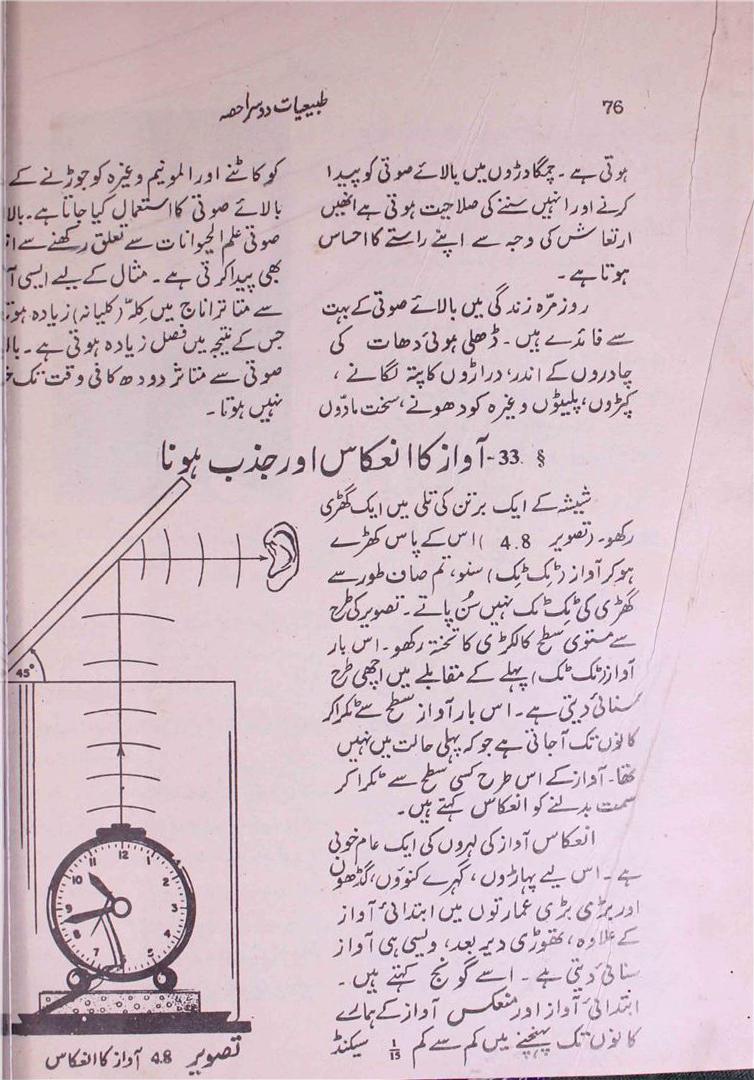 76
طبیعیات دوسرا حصہ
ہوتی ہے۔ چمگادڑوں میں بالائے صوتی کو پیدا
کرنے اور انہیں سننے کی صلاحیت ہوتی ہے انھیں
ارتعاش کی وجہ سے اپنے راستے کا احساس
ہوتا ہے۔
روزمرّہ زندگی میں بالائے صوتی کے بہت
سے فائدے ہیں۔ ڈھلی ہوئی دھات کی
چادروں کے اندر، دراڑوں کا پتہ لگانے،
کپڑوں، پلیٹوں وغیرہ کو دھونے، سخت مادّوں
کو کاٹنے اور المونیم وغیرہ کو جوڑنے کے
بالائے صوتی کا استعمال کیا جاتا ہے۔ بالا
صوتی علم الحیوانات سے تعلق رکھنے سے
بھی پیدا کرتی ہے۔ مثال کے لیے ایسی
سے متاثر اناج میں کِلّہ (کلیانہ) زیادہ ہوتا
جس کے نتیجہ میں فصل زیادہ ہوتی ہے۔
صوتی سے متاثر دودھ کافی وقت تک
نہیں ہوتا۔
§ 33۔ آواز کا انعکاس اور جذب ہونا
شیشہ کے ایک برتن کی تلی میں ایک گھڑی
رکھو۔ (تصویر 4.8) اس کے پاس کھڑے
ہو کر آواز (ٹِک ٹِک) سنو، تم صاف طور سے
گھڑی کی ٹِک ٹک نہیں سُن پاتے۔ تصویر کی طرح
سے مستوی سطح کا لکڑی کا تختہ رکھو۔ اس بار
آواز (ٹک ٹک) پہلے کے مقابلے میں اچھی طرح
سنائی دیتی ہے۔ اس بار آواز سطح سے ٹکرا کر
کانوں تک آجاتی ہے جو کہ پہلی حالت میں نہیں
تھا۔ آواز کے اس طرح کسی سطح سے ٹکرا کر
سمت بدلنے کو انعکاس کہتے ہیں۔
انعکاس آواز کی لہروں کی ایک عام خوبی
ہے۔ اس لیے پہاڑوں، گہرے کنوؤں، گڈھوں
اور بڑی بڑی عمارتوں میں ابتدائی آواز
کے علاوہ، تھوڑی دیر بعد، ویسی ہی آواز
سنائی دیتی ہے۔ اسے گونج کہتے ہیں۔
ابتدائی آواز اور منعکس آواز کے ہمارے
کانوں تک پہنچنے میں کم سے کم 1/15 سیکنڈ
45°
12
11
10
9
8
7
5
4
3
2
1
تصویر 4.8 آواز کا انعکاس